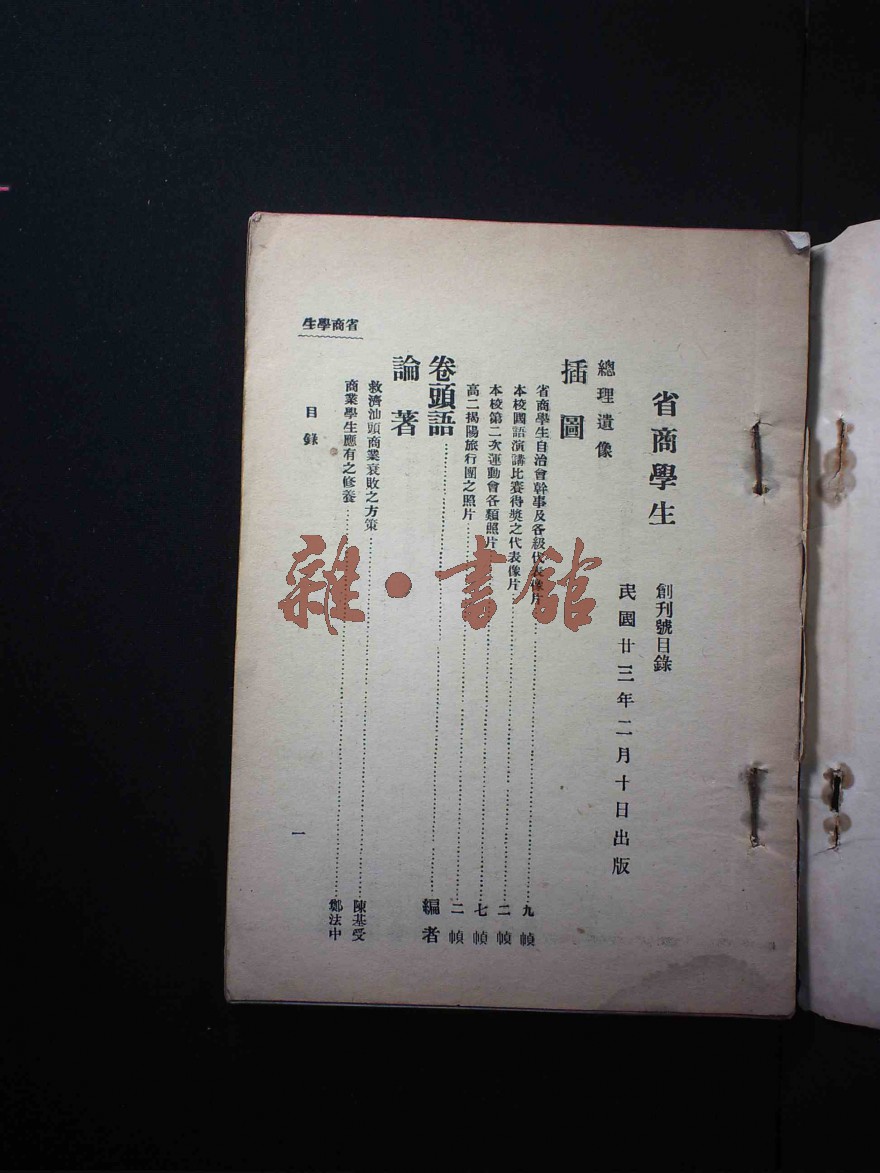 省商學生 創刊號目錄
民國廿三年二月十日出版
總理遺像
插圖
省商學生自治會幹事及各級代表像片 九幀
本校國語演講比賽得獎之代表像片 二幀
本校第二次運動會各類照片 七幀
高二揭陽旅行團之照片 二幀
卷頭語 編者
論著
救濟汕頭商業衰敗之方策 陳基受
商業學生應有之修養 鄭法中
省商學生
目錄
一
雜·書館